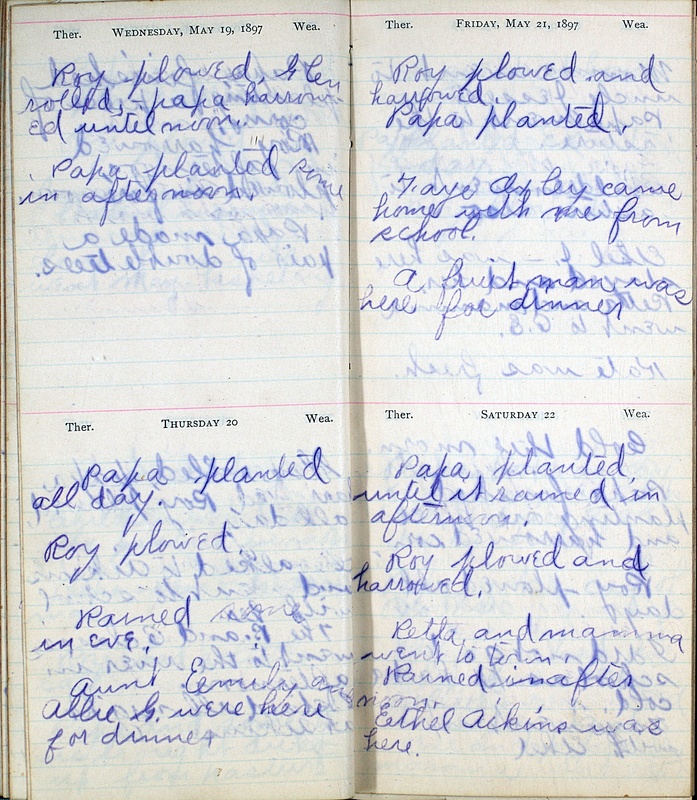 Ther. WEDNESDAY, MAY 19, 1897 Wea.
Roy plowed, Glen
rolled, - papa harrow
ed until noon.
Papa planted some
in afternoon.
Ther. THURSDAY 20 Wea.
Papa planted
all day.
Roy plowed.
Rained some
in eve.
Aunt Emily and
Allie G. were here
for dinner
Ther. FRIDAY, MAY 21, 1897 Wea.
Roy plowed and
harrowed.
Papa planted.
Faye came
home with me from
school.
A fruit man was
here for dinner
Ther. SATURDAY 22 Wea.
Papa planted,
until it rained in
afternoon.
Roy plowed and
harrowed.
Retta and mamma
went to town
Rained in after
noon.
Ethel Aikins was
here.